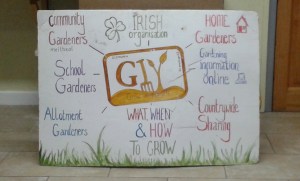 Community
Gardeners
IRISH
organisation
HOME
Gardeners
School
Gardeners
GIY
Gardening
information
online
Allotment
Gardeners
WHAT, WHEN
& HOW
TO GROW
Countrywide
Sharing